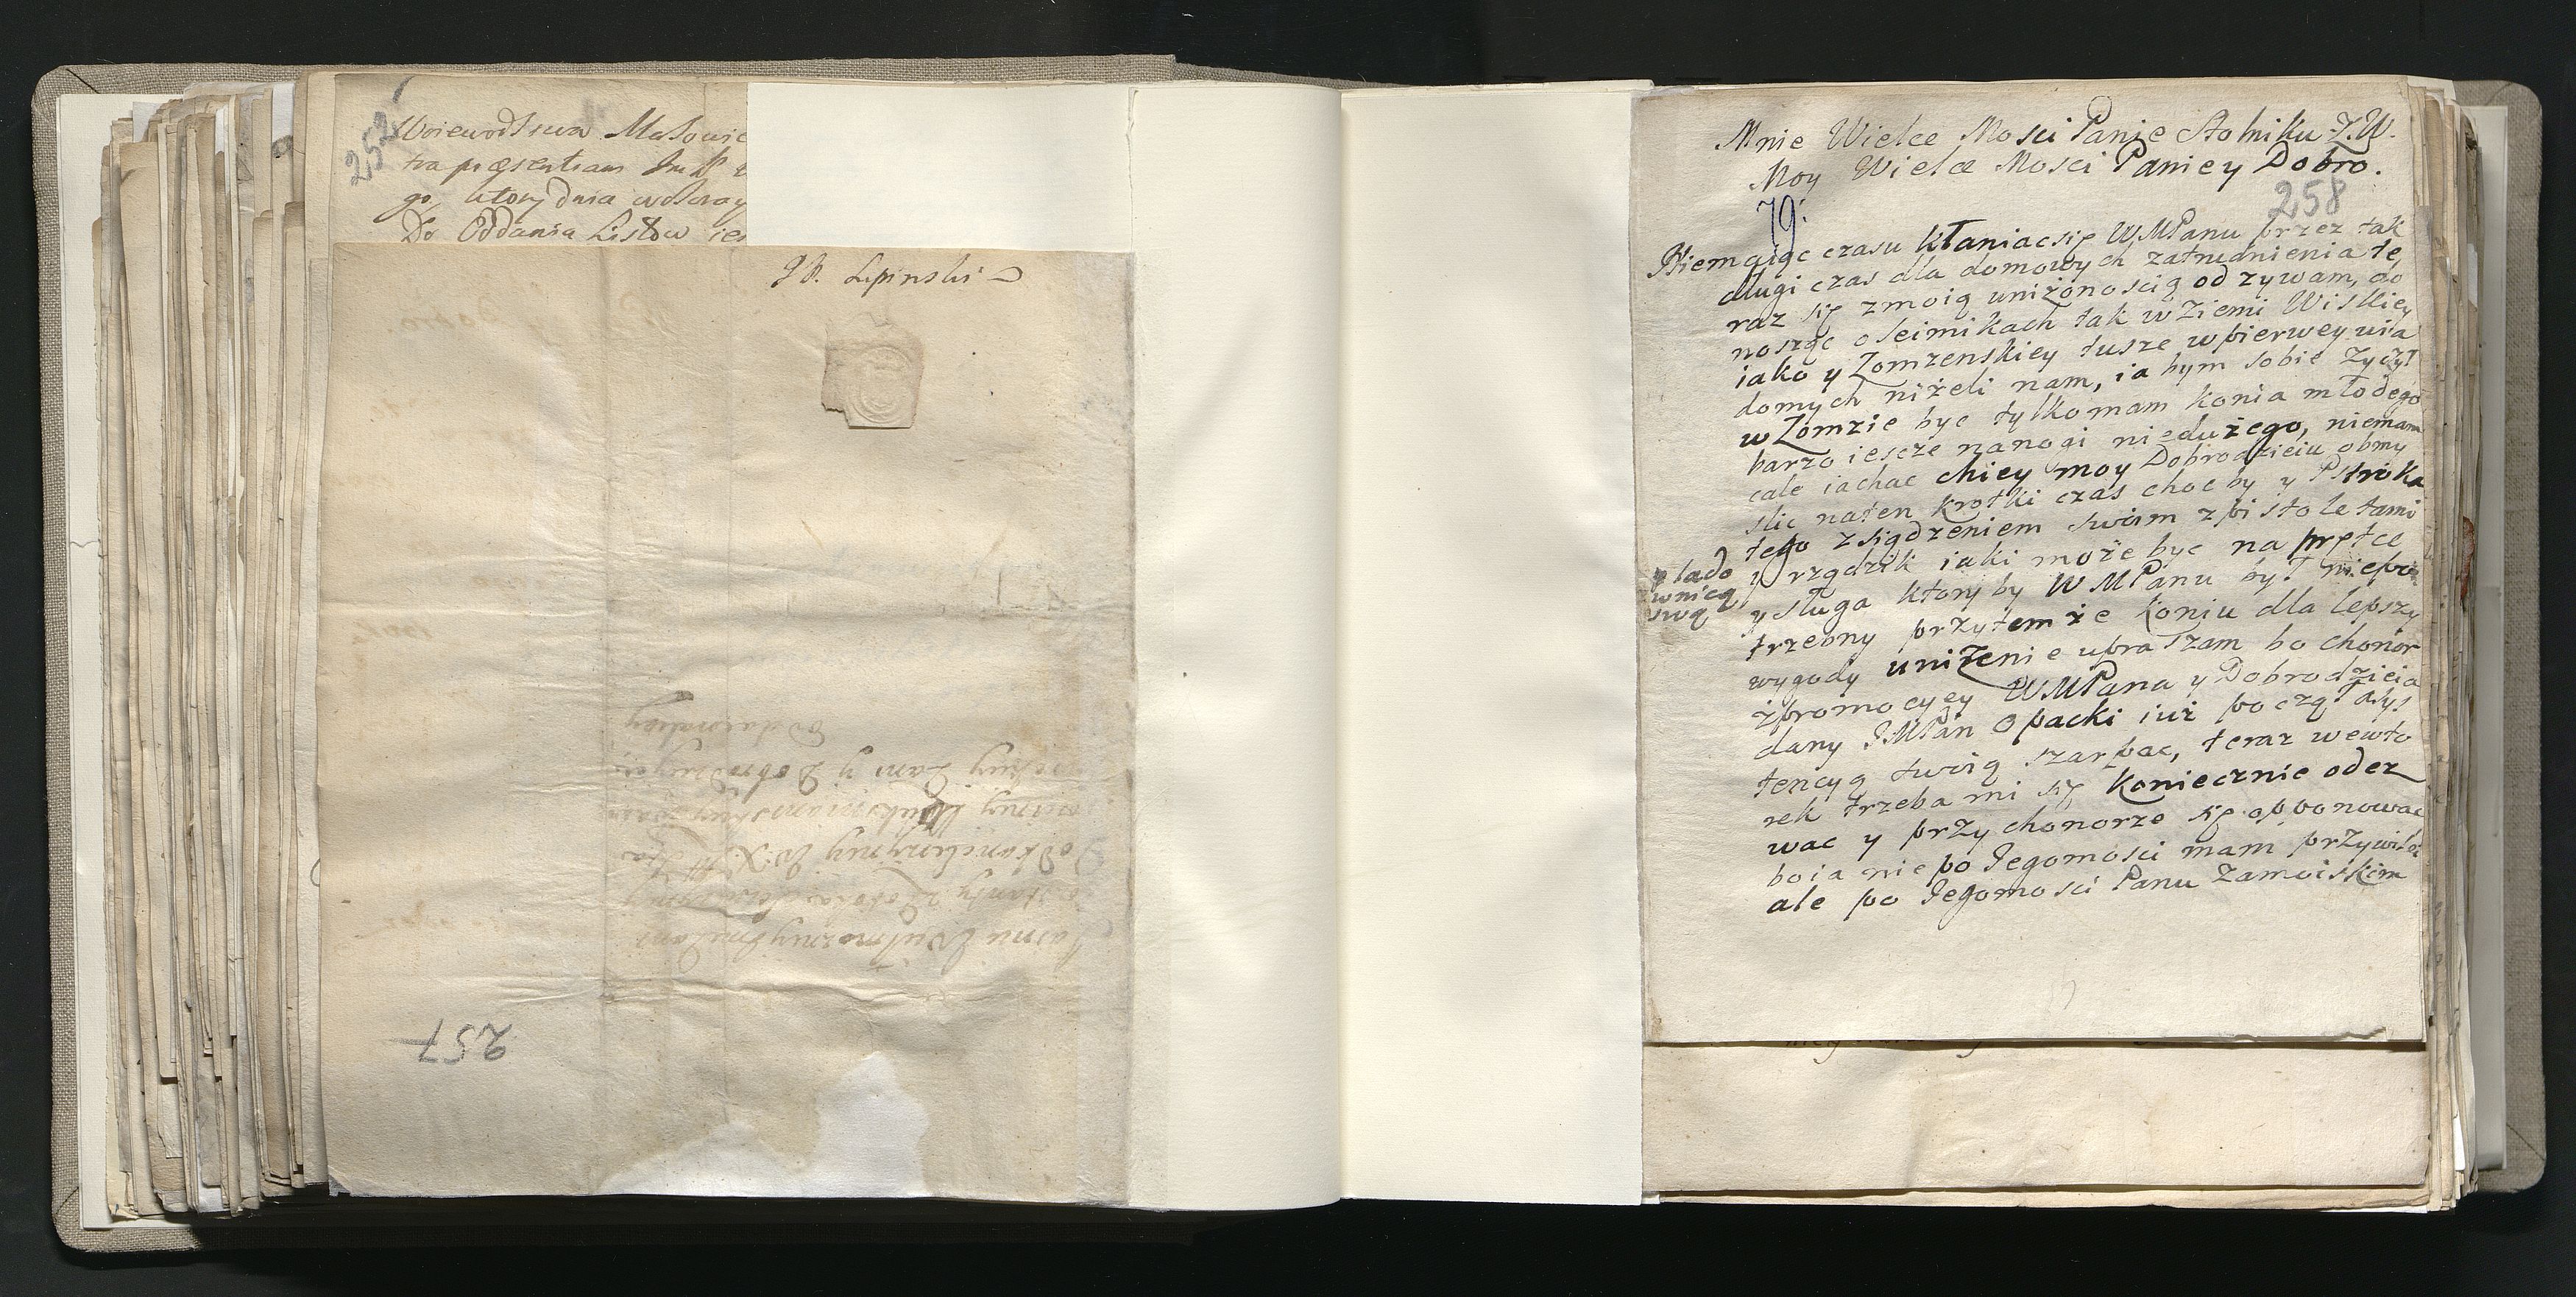 252
Woiewodstwa Mazowie
tra præsentiam Jm P
go, ktory dnia wczoray
Do Oddania Listow ies
JP. Lipinski
Jasnie Wielmozney Jmci Pani
Podkanclerzyney W. X. Litt
Pani y Dobrodzieyce
Oddac nalezy
257
Mnie Wielce Mosci Panie Stolniku Z. W.
Moy Wielce Mosci Panie y Dobro.
258
79.
Niemaiąc czasu kłaniac się WMPanu przez tak
długi czas dla domowych zatrudnienia te
raz się zmoią uniżonoscią odzywam, do
nosząc o seimikach tak w Ziemi Wiskiey
iako y Zomzenskiey tusze wpierwey wia
domych niżeli nam, ia bym sobie życzył
w Zomzie byc tylko mam konia młodego
barzo iescze nanogi niedużego, niemam
cale iachac chiey moy Dobrodzieiu obmy
slic naten krotki czas choc by y Pstroka
tego zsiądzeniem swoim zpistoletami
y lado
wnicą
swą
y rządzik iaki może byc na prętce
y sługa ktory by WMPanu był niepo
trzebny przytemże koniu dla lepszy
wygody uniżenie upraszam bo chonor
zpromocyey WMPana y Dobrodzieia
dany JMPan Opacki iuż począł Assys
tencyą swoią szarpac, teraz wewto
rek trzeba mi się koniecznie odez
wac y przy chonorze się opponowac
bo ia nie po Jegomosci mam przywiley
ale po Jegomosci Panu Zamoiskim